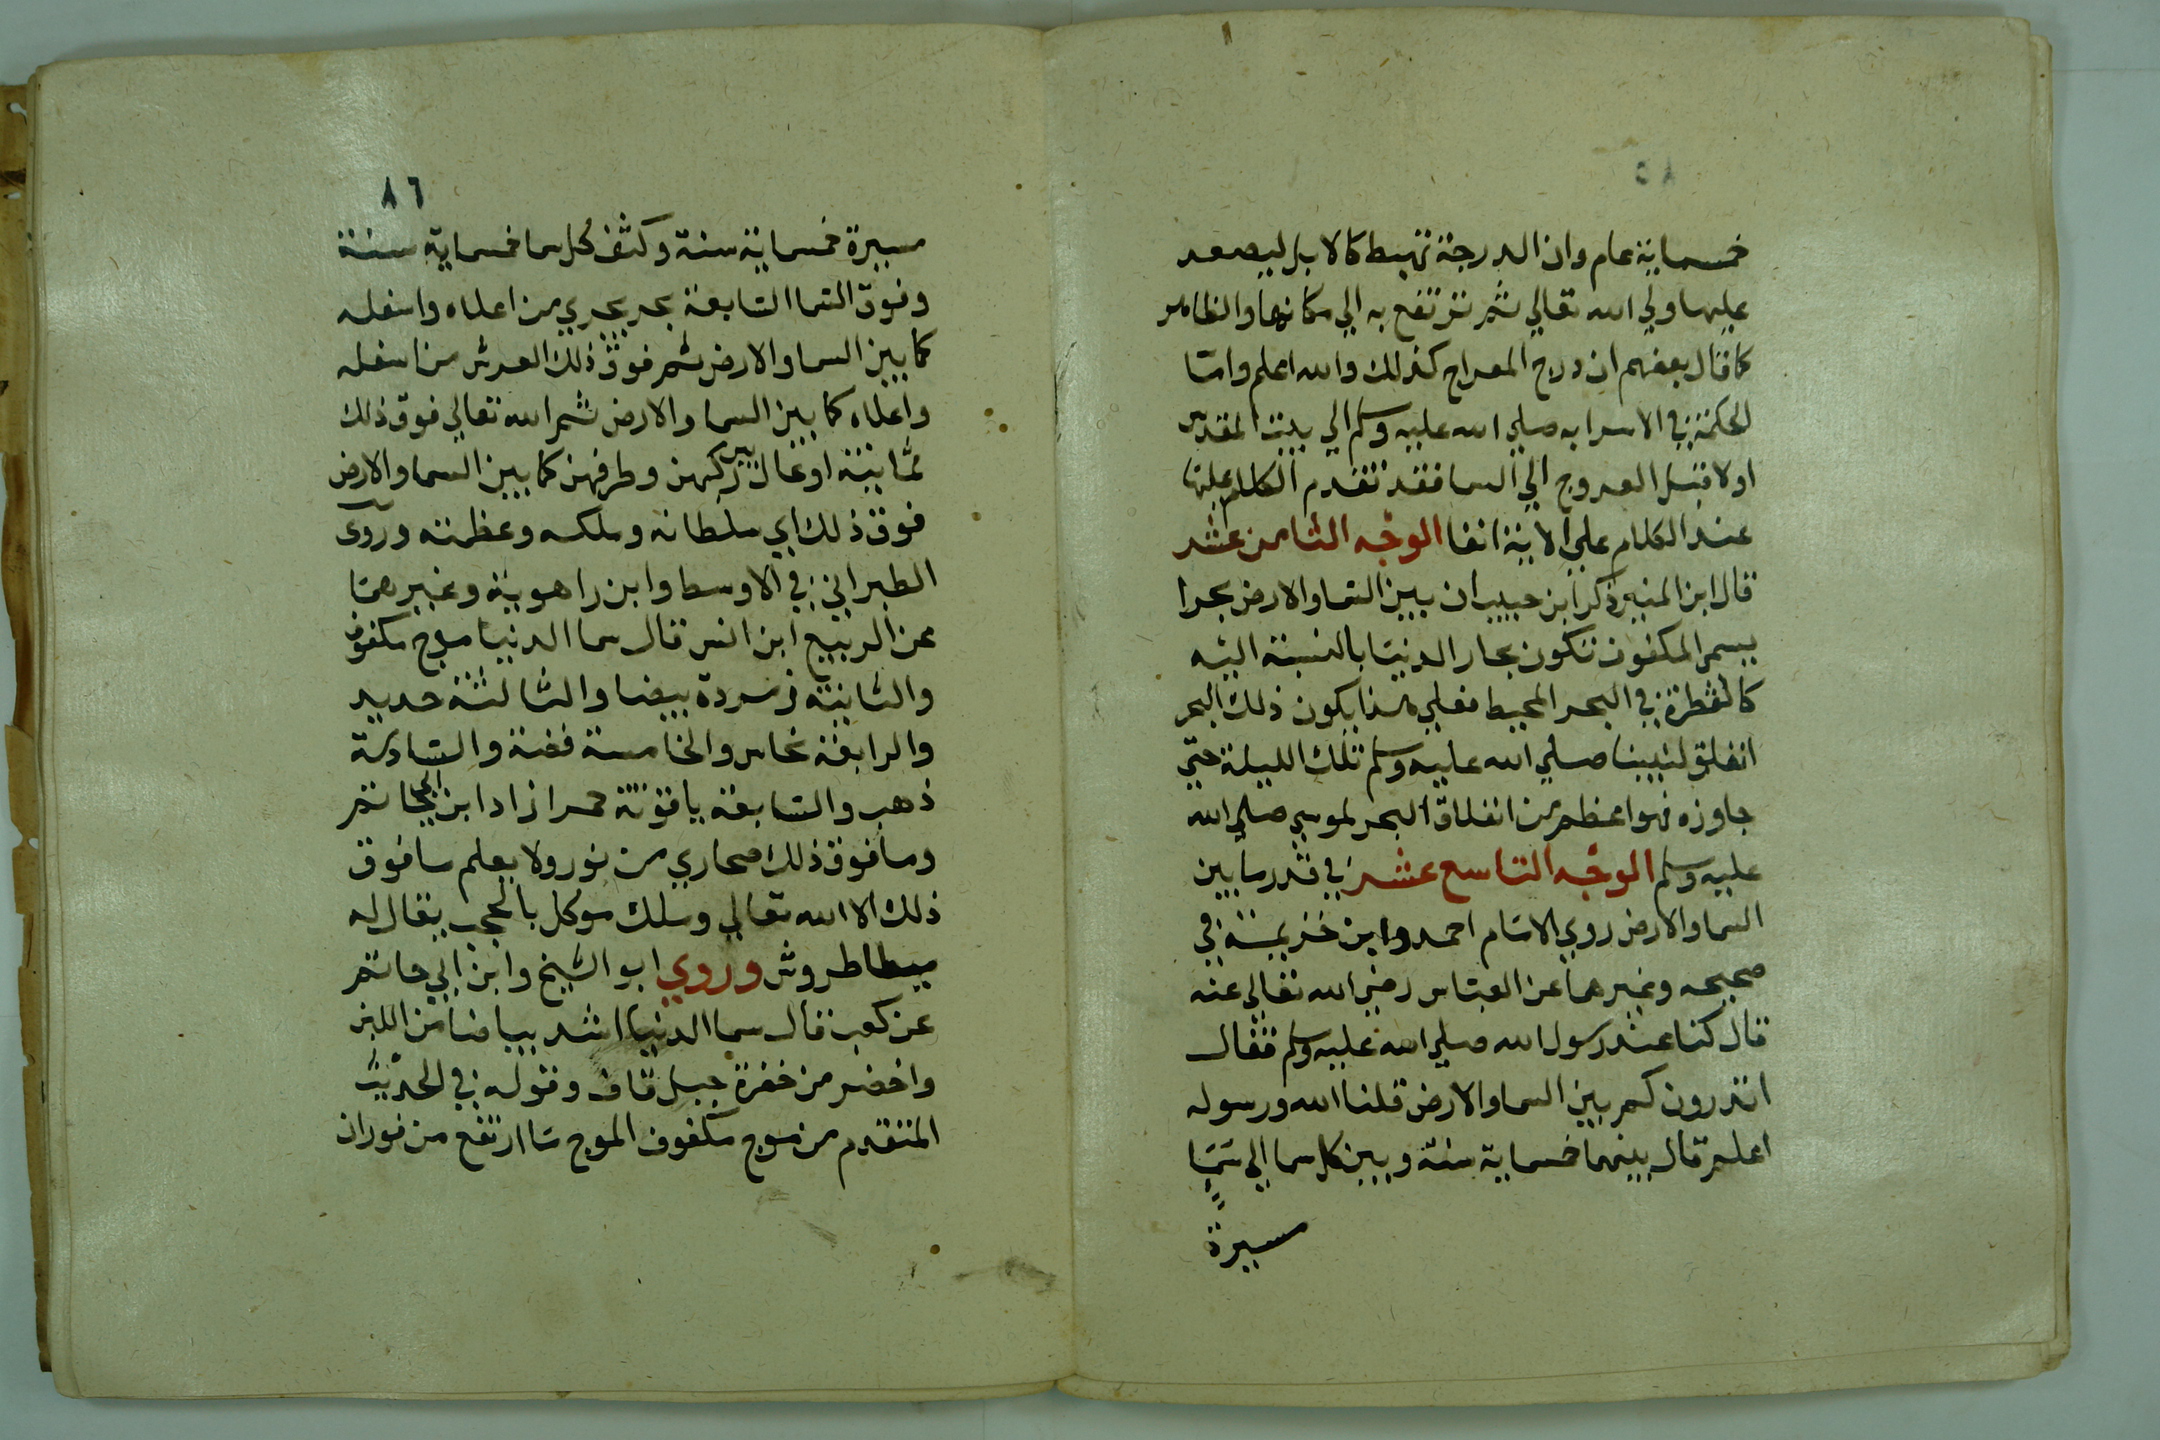 خمسماية عام وان الدرجة تهبط كالابل ليصعد
عليها ولي الله تعالي ثم ترتفع به الي مكانها والظاهر
كما قال بعضهم ان درج المعراج كذلك والله اعلم واما
الحكمة في الاسرا به صلي الله عليه وسلم الي بيت المقدس
اولا قبل العروج الي السما فقد تقدم الكلام عليها
عند الكلام علي الاية انفا الوجه الثامن عشر
قال ابن المنير ذكر ابن حبيب ان بين السما والارض بحرا
يسمي المكفوف تكون بحار الدنيا بالنسبة اليه
كالقطرة في البحر المحيط فعلي هذا يكون ذلك البحر
انفلق لنبينا صلي الله عليه وسلم تلك الليلة حتي
جاوزه فهو اعظم من انفلاق البحر لموسي صلي الله
عليه وسلم الوجه التاسع عشر في قدر ما بين
السما والارض روي الامام احمد وابن خزيمة في
صحيحه وغيرهما عن العباس رضي الله تعالي عنه
قال كنا عند رسول الله صلي الله عليه وسلم فقال
اتدرون كم بين السما والارض قلنا الله ورسوله
اعلم قال بينهما خمسماية سنة وبين كل سما الي سما
مسيرة
٨٦
مسيرة خمسماية سنة وكثف كل سما خمسماية سنة
وفوق السما السابعة بحر يجري من اعلاه واسفله
كما بين السما والارض ثم فوق ذلك العرش من اسفله
واعلاه كما بين السما والارض ثم الله تعالي فوق ذلك
ثمانية اوعال بين ركبهن وطرفهن كما بين السما والارض
فوق ذلك اي سلطانه وملكه وعظمته وروي
الطبراني في الاوسط وابن راهوية وغيرهما
عن الربيع ابن انس قال سما الدنيا موج مكفوف
والثانية زمردة بيضا والثالثة حديد
والرابعة نحاس والخامسة فضة والسادسة
ذهب والسابعة ياقوتة حمرا زاد ابن ابي حاتم
وما فوق ذلك صحاري من نور ولا يعلم ما فوق
ذلك الا الله تعالي وملك موكل بالحجب يقال له
ميطاطروش وروي ابو الشيخ وابن ابي حاتم
عن كعب قال سما الدنيا اشد بياضا من اللبن
واخضر من خضرة جبل قاف وقوله في الحديث
المتقدم من موج مكفوف الموج ما ارتفع من فوران